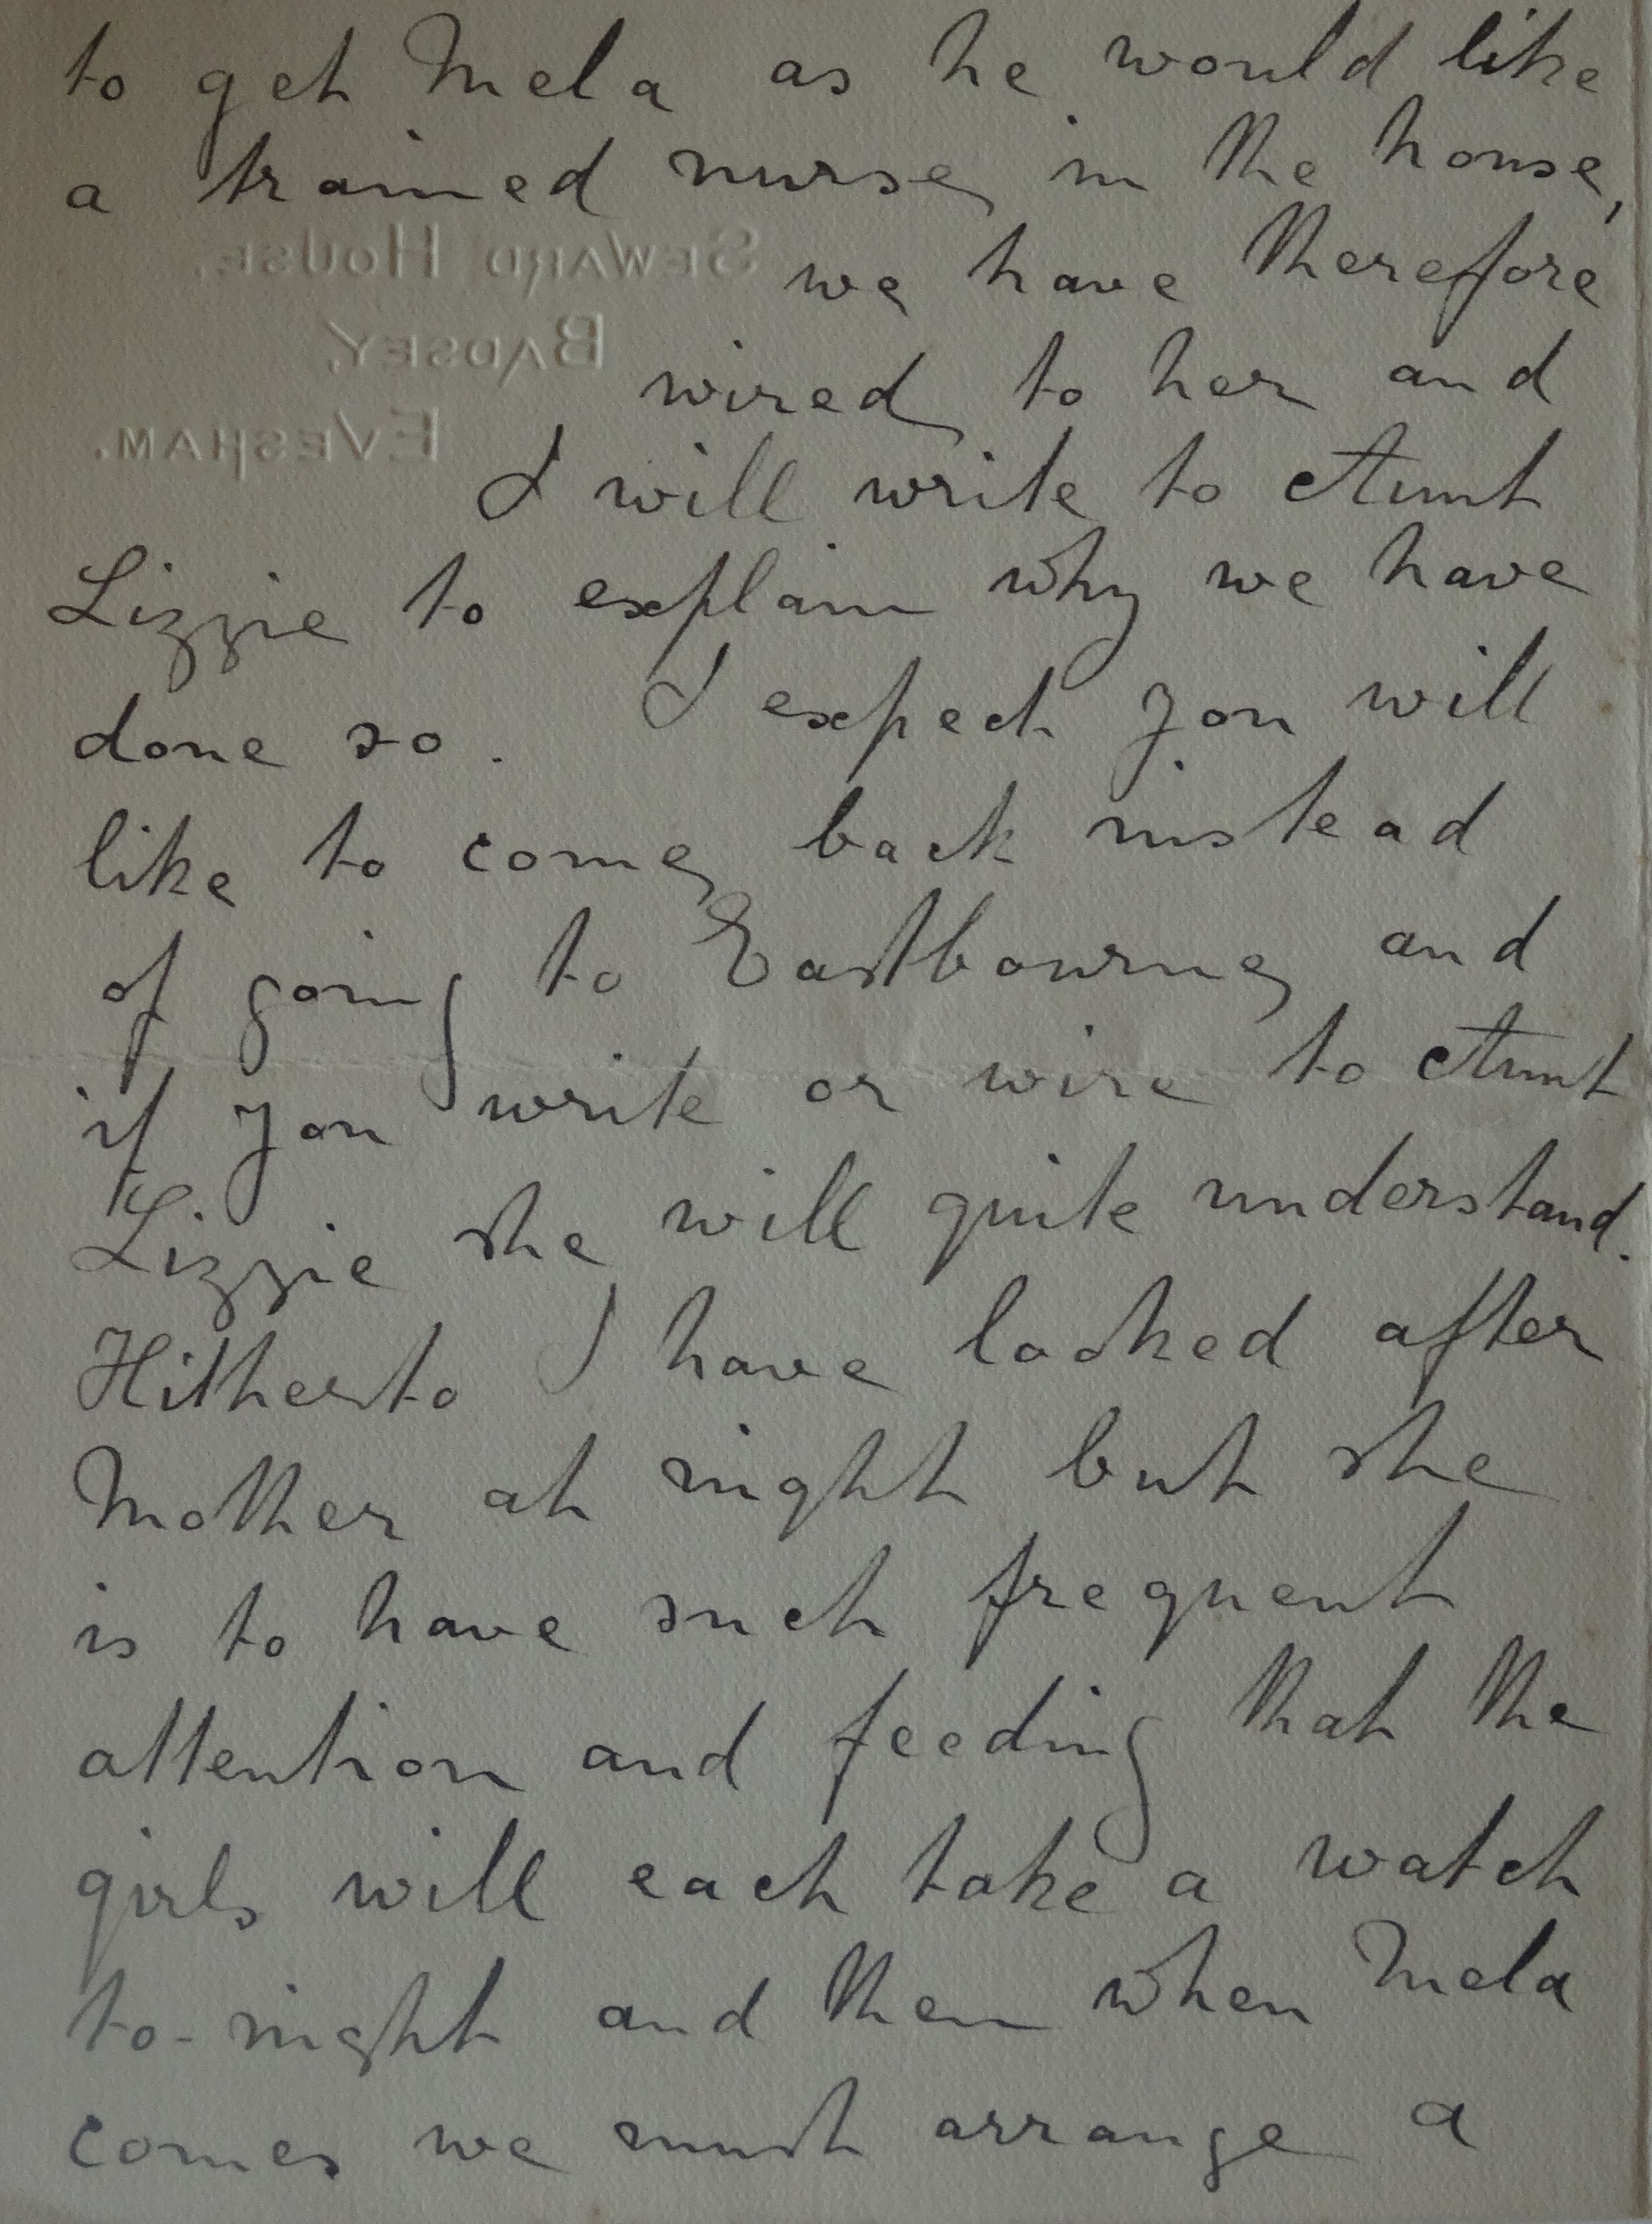 to get Mela as he would like
a trained nurse in the house,
SEWARD HOUSE,
we have therefore
BADSEY,
wired to her and
EVESHAM.
I will write to Aunt
Lizzie to explain why we have
done so. I expect you will
like to come back instead
of going to Eastbourne and
if you write or wire to Aunt
Lizzie she will quite understand.
Hitherto I have looked after
Mother at night but she
is to have such frequent
attention and feeding that the
girls will each take a watch
to-night and then when Mela
comes we must arrange a